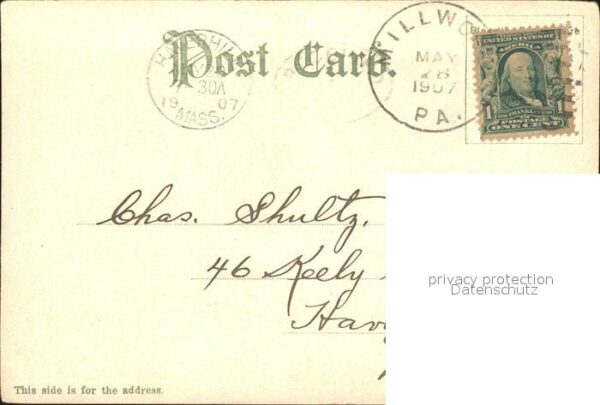 Post Card.
HAVERHILL
30A
19 07
MASS.
MILLWOOD
MAY
28
1907
PA.
UNITED STATES OF
AMERICA
1 1
POSTAGE
ONE CENT
Chas. Shultz,
46 Keely
Hav
privacy protection
Datenschutz
This side is for the address.